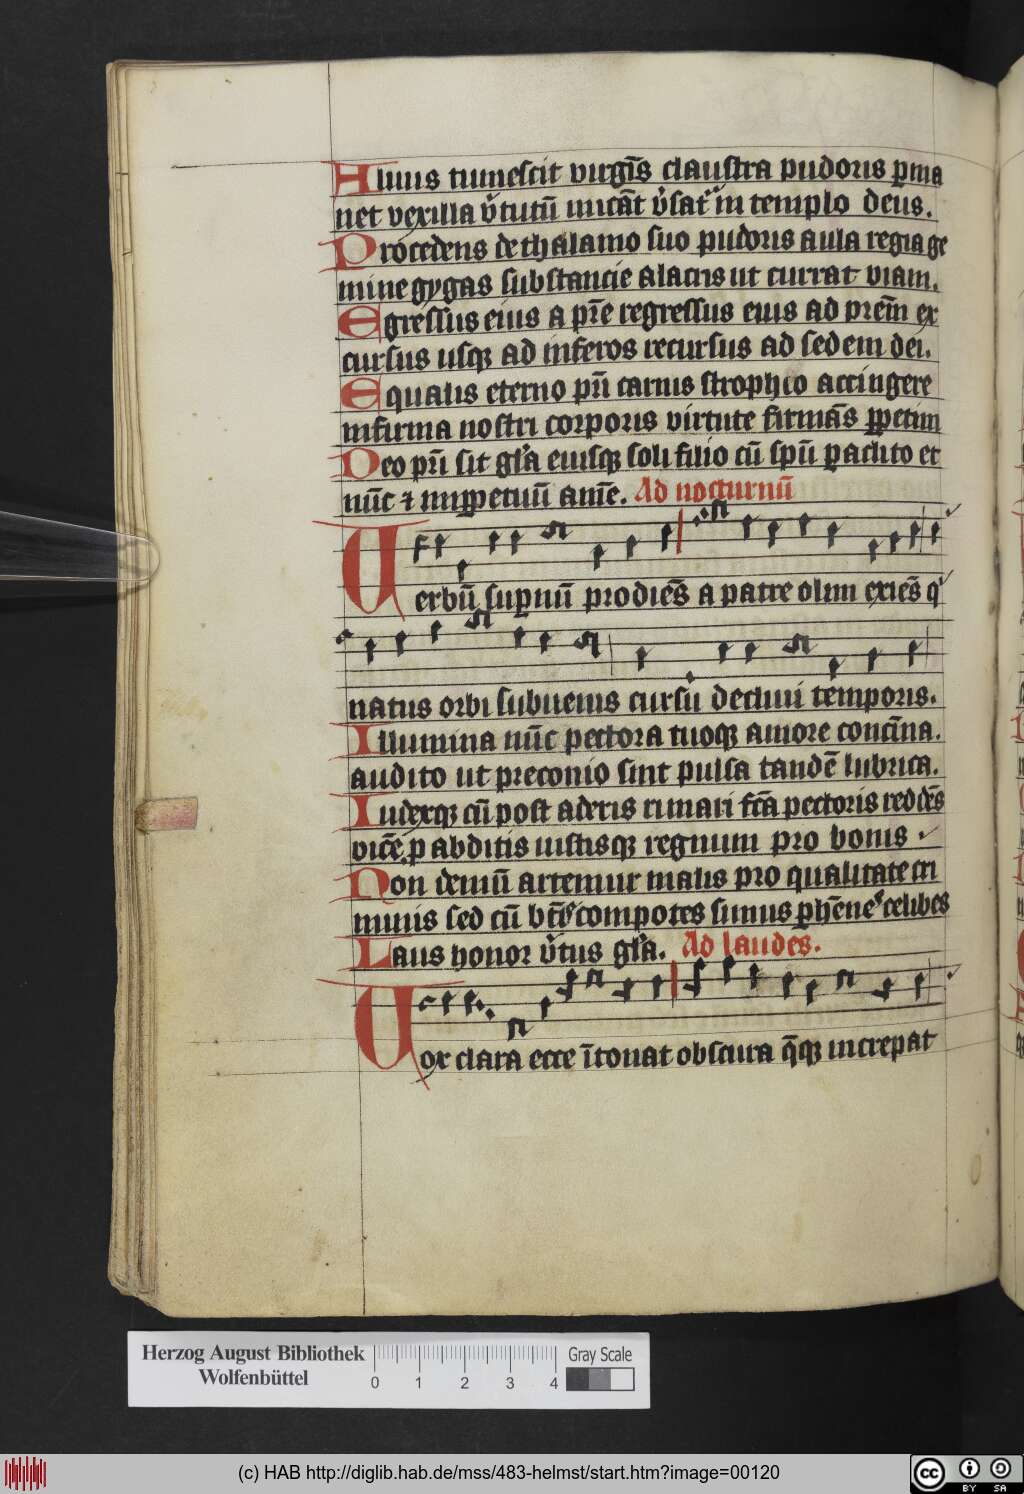 Aluus tumescit uirgīs claustra pudoris ꝑma
net vexilla v̓tutū micāt v̓sat᷑ in templo deus.
Procedens de thalamo suo pudoris aula regia ge
mine gygas substancie alacris ut currat viam.
Egressus eius a pr̄e regressus eius ad prem̄ ex
cursus usqꝫ ad inferos recursus ad sedem dei.
Equalis eterno pr̄i carnis strophio accingere
infirma nostri corporis virtute firmās ꝑpetim
Deo pr̄i sit gl̓a eiusqꝫ soli filio cū spū paclito et
nūc ⁊ imꝑpetuū amē. Ad nocturnū
Uerbū suꝑnū prodiēs a patre olim exiēs q
natus orbi subuenis cursu decliui temporis.
Illumina nūc pectora tuoqꝫ amore concīna.
audito ut preconio sint pulsa tandē lubrica.
Iudexqꝫ cū post aderis rimari fc̄a pectoris reddēs
vicē ꝓ abditis iustisqꝫ regnum pro bonis
Non demū artemur malis pro qualitate cri
minis sed cū bt̄is compotes simus ꝑhēnes celibes
Laus honor v̓tus gl̓a. Ad laudes.
Uox clara ecce ītonat obscura q̄qꝫ increpat
Herzog August Bibliothek
Wolfenbüttel
0 1 2 3 4
Gray Scale
(c) HAB http://diglib.hab.de/mss/483-helmst/start.htm?image=00120
cc BY SA